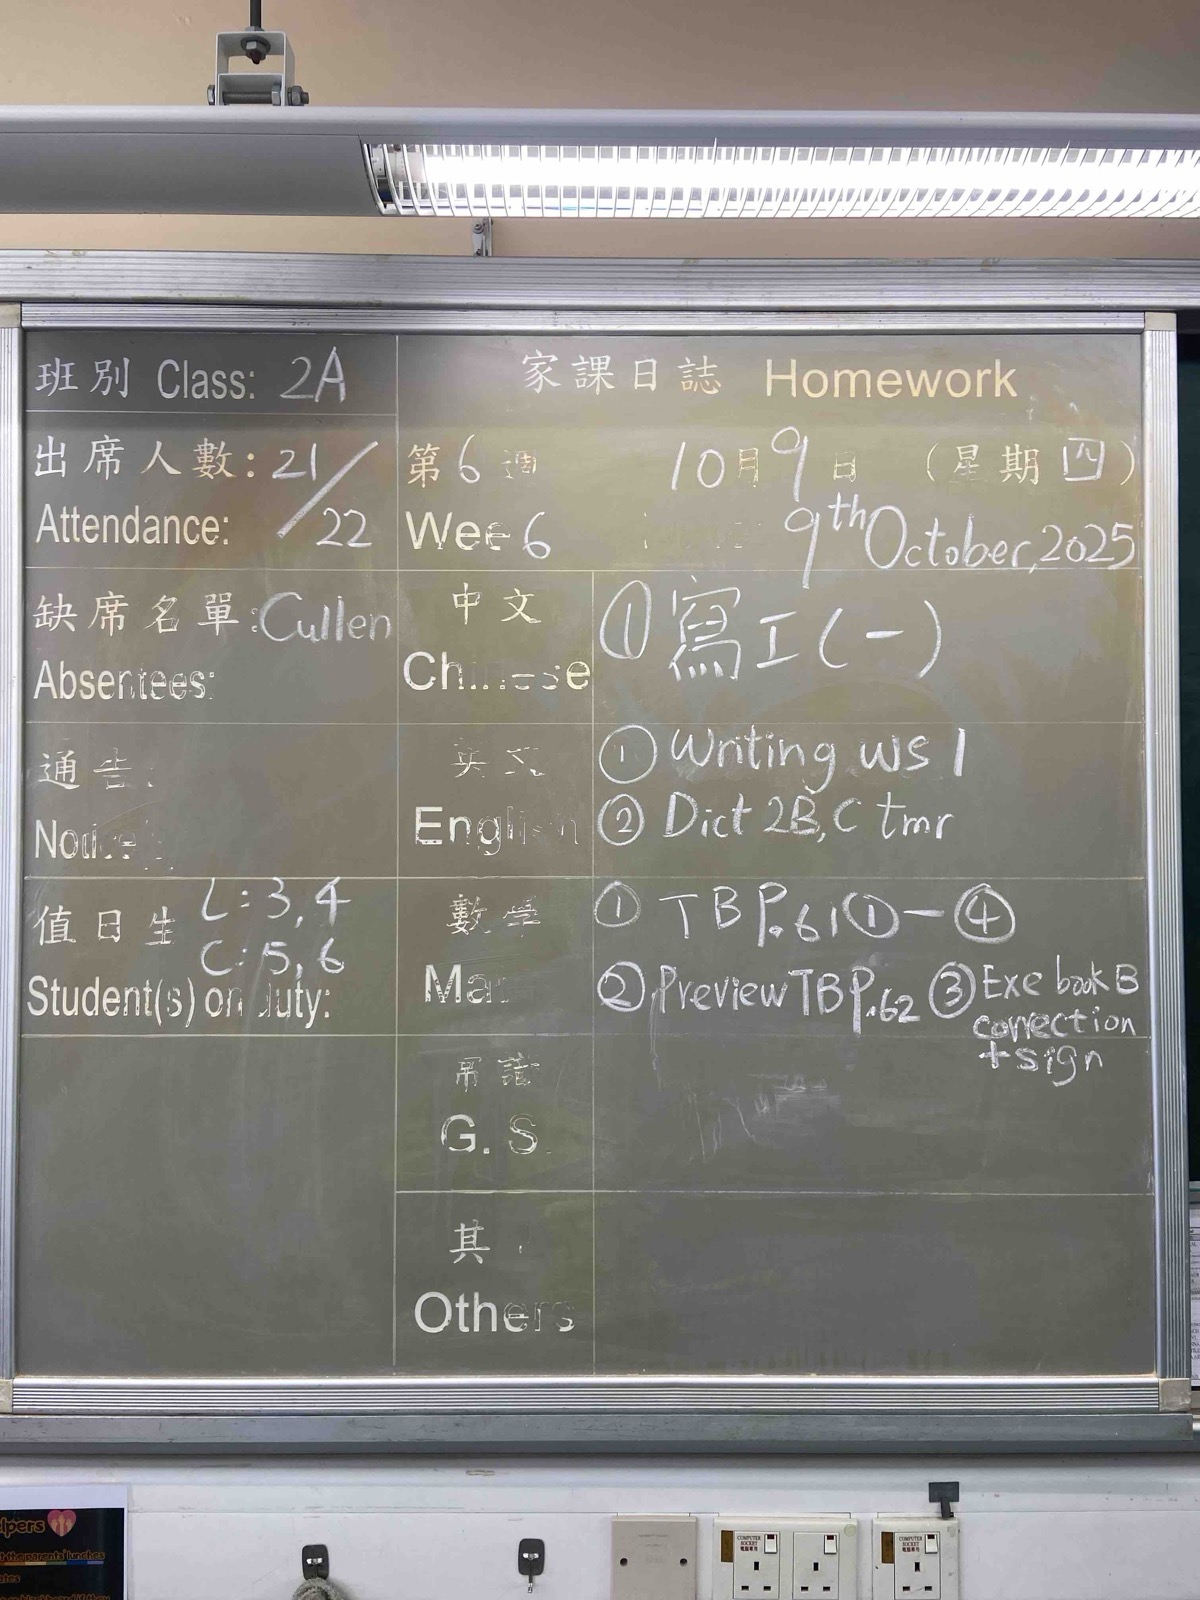 班別 Class: 2A
家課日誌 Homework
出席人數: 21/22
Attendance:
第6週 10月9日 (星期四)
Wee 6 9th October, 2025
缺席名單: Cullen
Absentees:
中文
Chinese
① 寫工(一)
通告:
Notice
英文
English
① Writing ws 1
② Dict 2B, C tmr
值日生 L: 3, 4
C: 5, 6
Student(s) on duty:
數學
Ma
① TB P.61 ① - ④
② Preview TB P.62 ③ Exe book B
correction
+ sign
常識
G. S.
其
Others
lpers
COMPUTER SOCKET 電腦專用
COMPUTER SOCKET 電腦專用